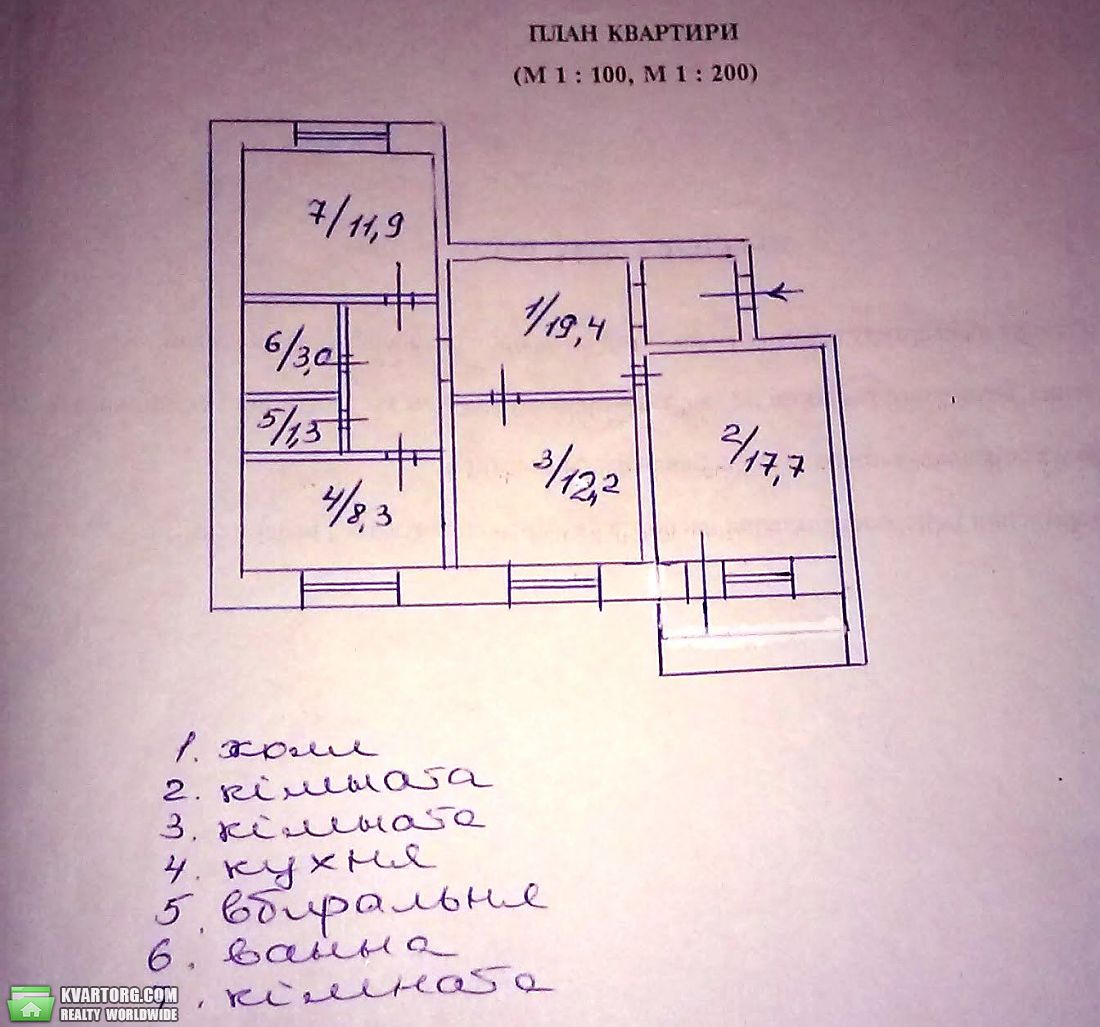 ПЛАН КВАРТИРИ
(М 1 : 100, М 1 : 200)
7/11,9
1/19,4
6/3,0
5/1,3
2/17,7
3/12,2
4/8,3
1. холл
2. кімната
3. кімната
4. кухня
5. вбиральня
6. ванна
7. кімната
KVARTORG.COM
REALTY WORLDWIDE